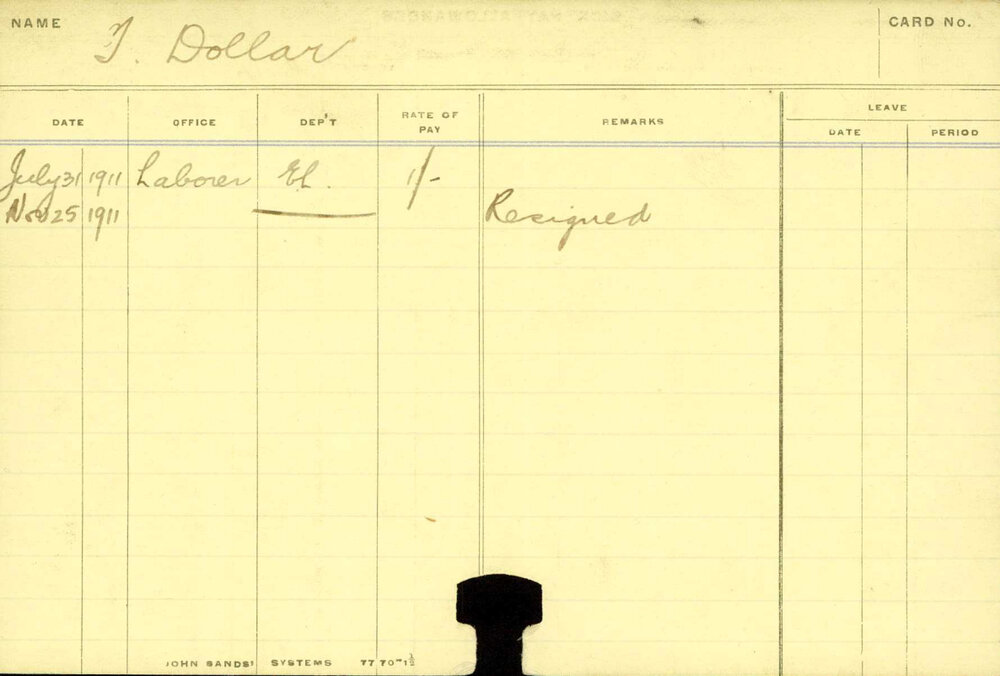 NAME T. Dollar CARD No.
DATE OFFICE DEP'T RATE OF PAY REMARKS LEAVE
DATE PERIOD
July 31 1911 Laborer El. 1/-
Nov 25 1911 Resigned
JOHN SANDS' SYSTEMS 77 70m 1½